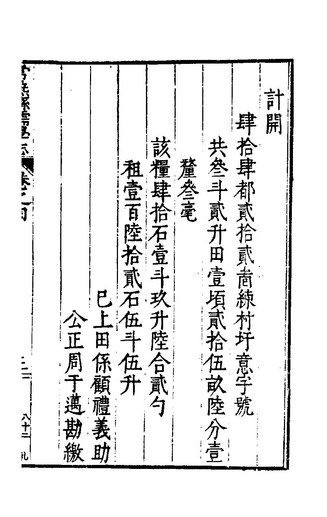 計開
肆拾肆都貳拾貳啚練村圩意字號
共叁斗貳升田壹頃貳拾伍畝陸分壹
釐叁毫
該糧肆拾石壹斗玖升陸合貳勺
租壹百陸拾貳石伍斗伍升
巳上田係顧禮義助
公正周于邁勘繳
常熟縣儒學志 卷之四
八十二